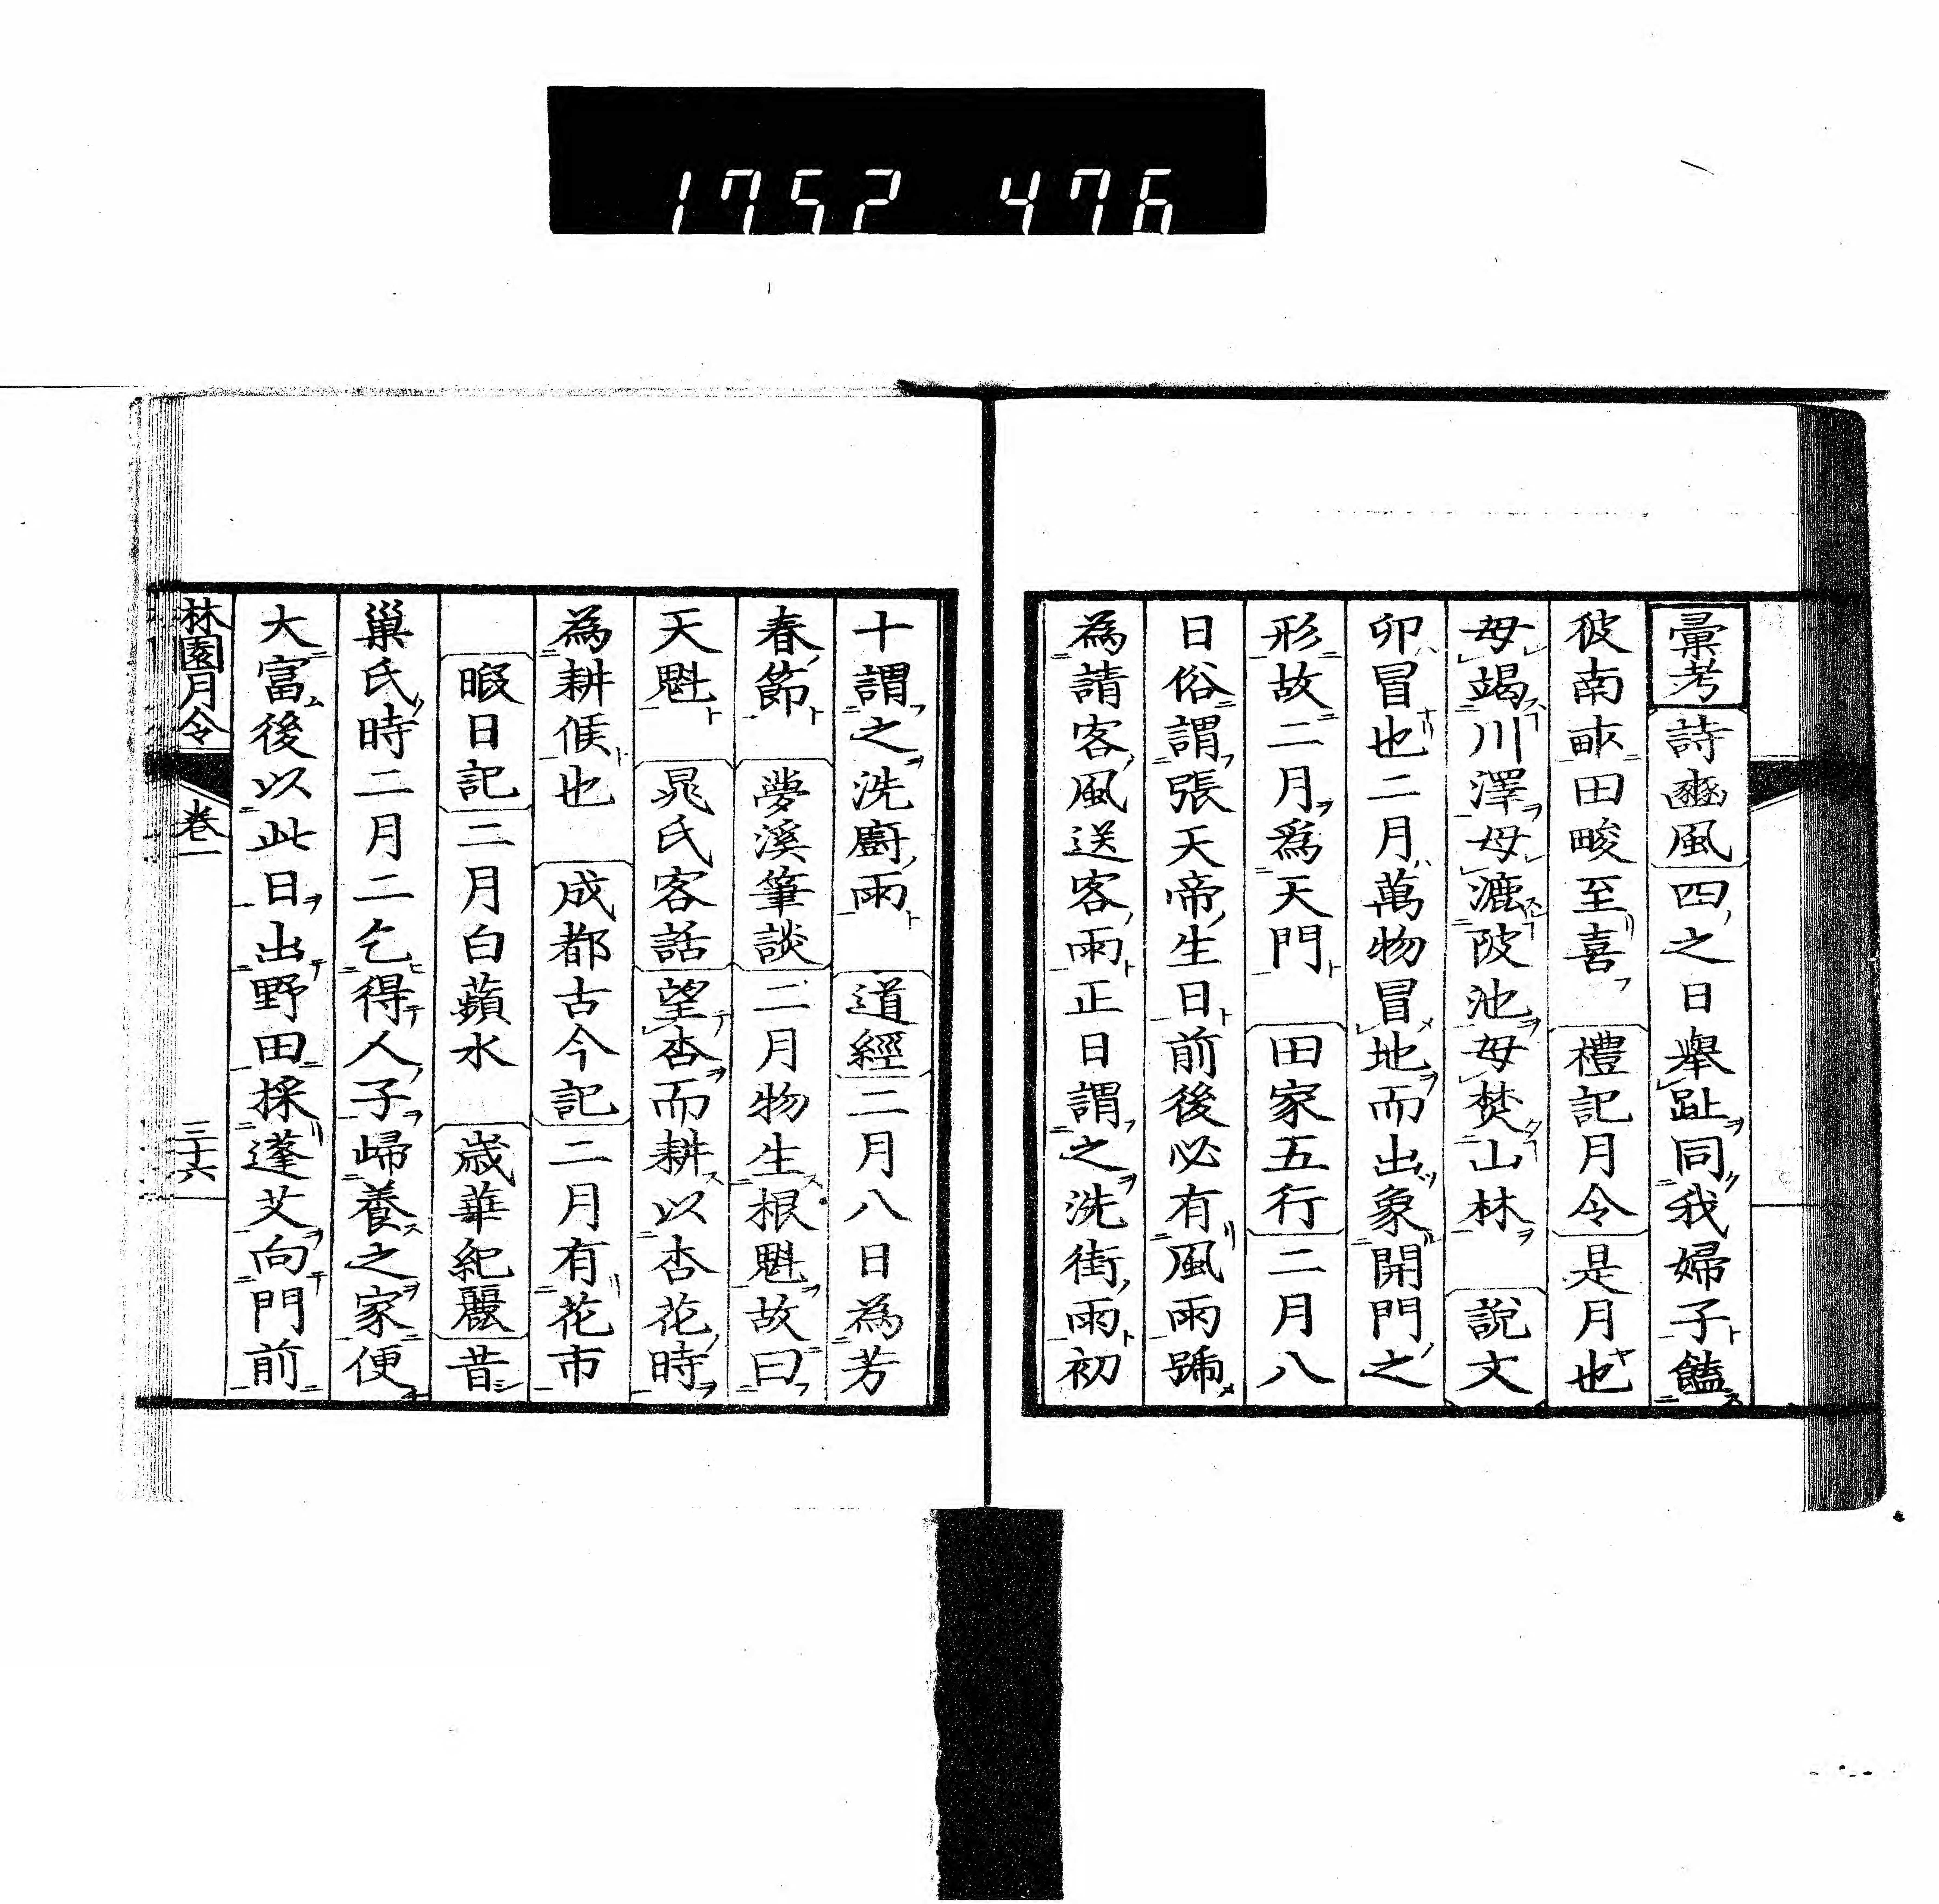 1752 476
彙考詩豳風四之日舉趾同我婦子饁
彼南畝田畯至喜禮記月令是月也
毋竭川澤毋漉陂池毋焚山林說文
卯冒也二月萬物冒地而出象開門之
形故二月爲天門田家五行二月八
日俗謂張天帝生日前後必有風雨號
為請客風送客雨正日謂之洗街雨初
十謂之洗廚雨道經二月八日為芳
春節夢溪筆談二月物生根魁故曰
天魁晁氏客話望杏而耕以杏花時
為耕候也成都古今記二月有花市
暇日記二月白蘋水歲華紀麗昔
巢氏時二月二乞得人子歸養之家便
大富後以此日出野田採蓬艾向門前
林園月令 卷一 三十六